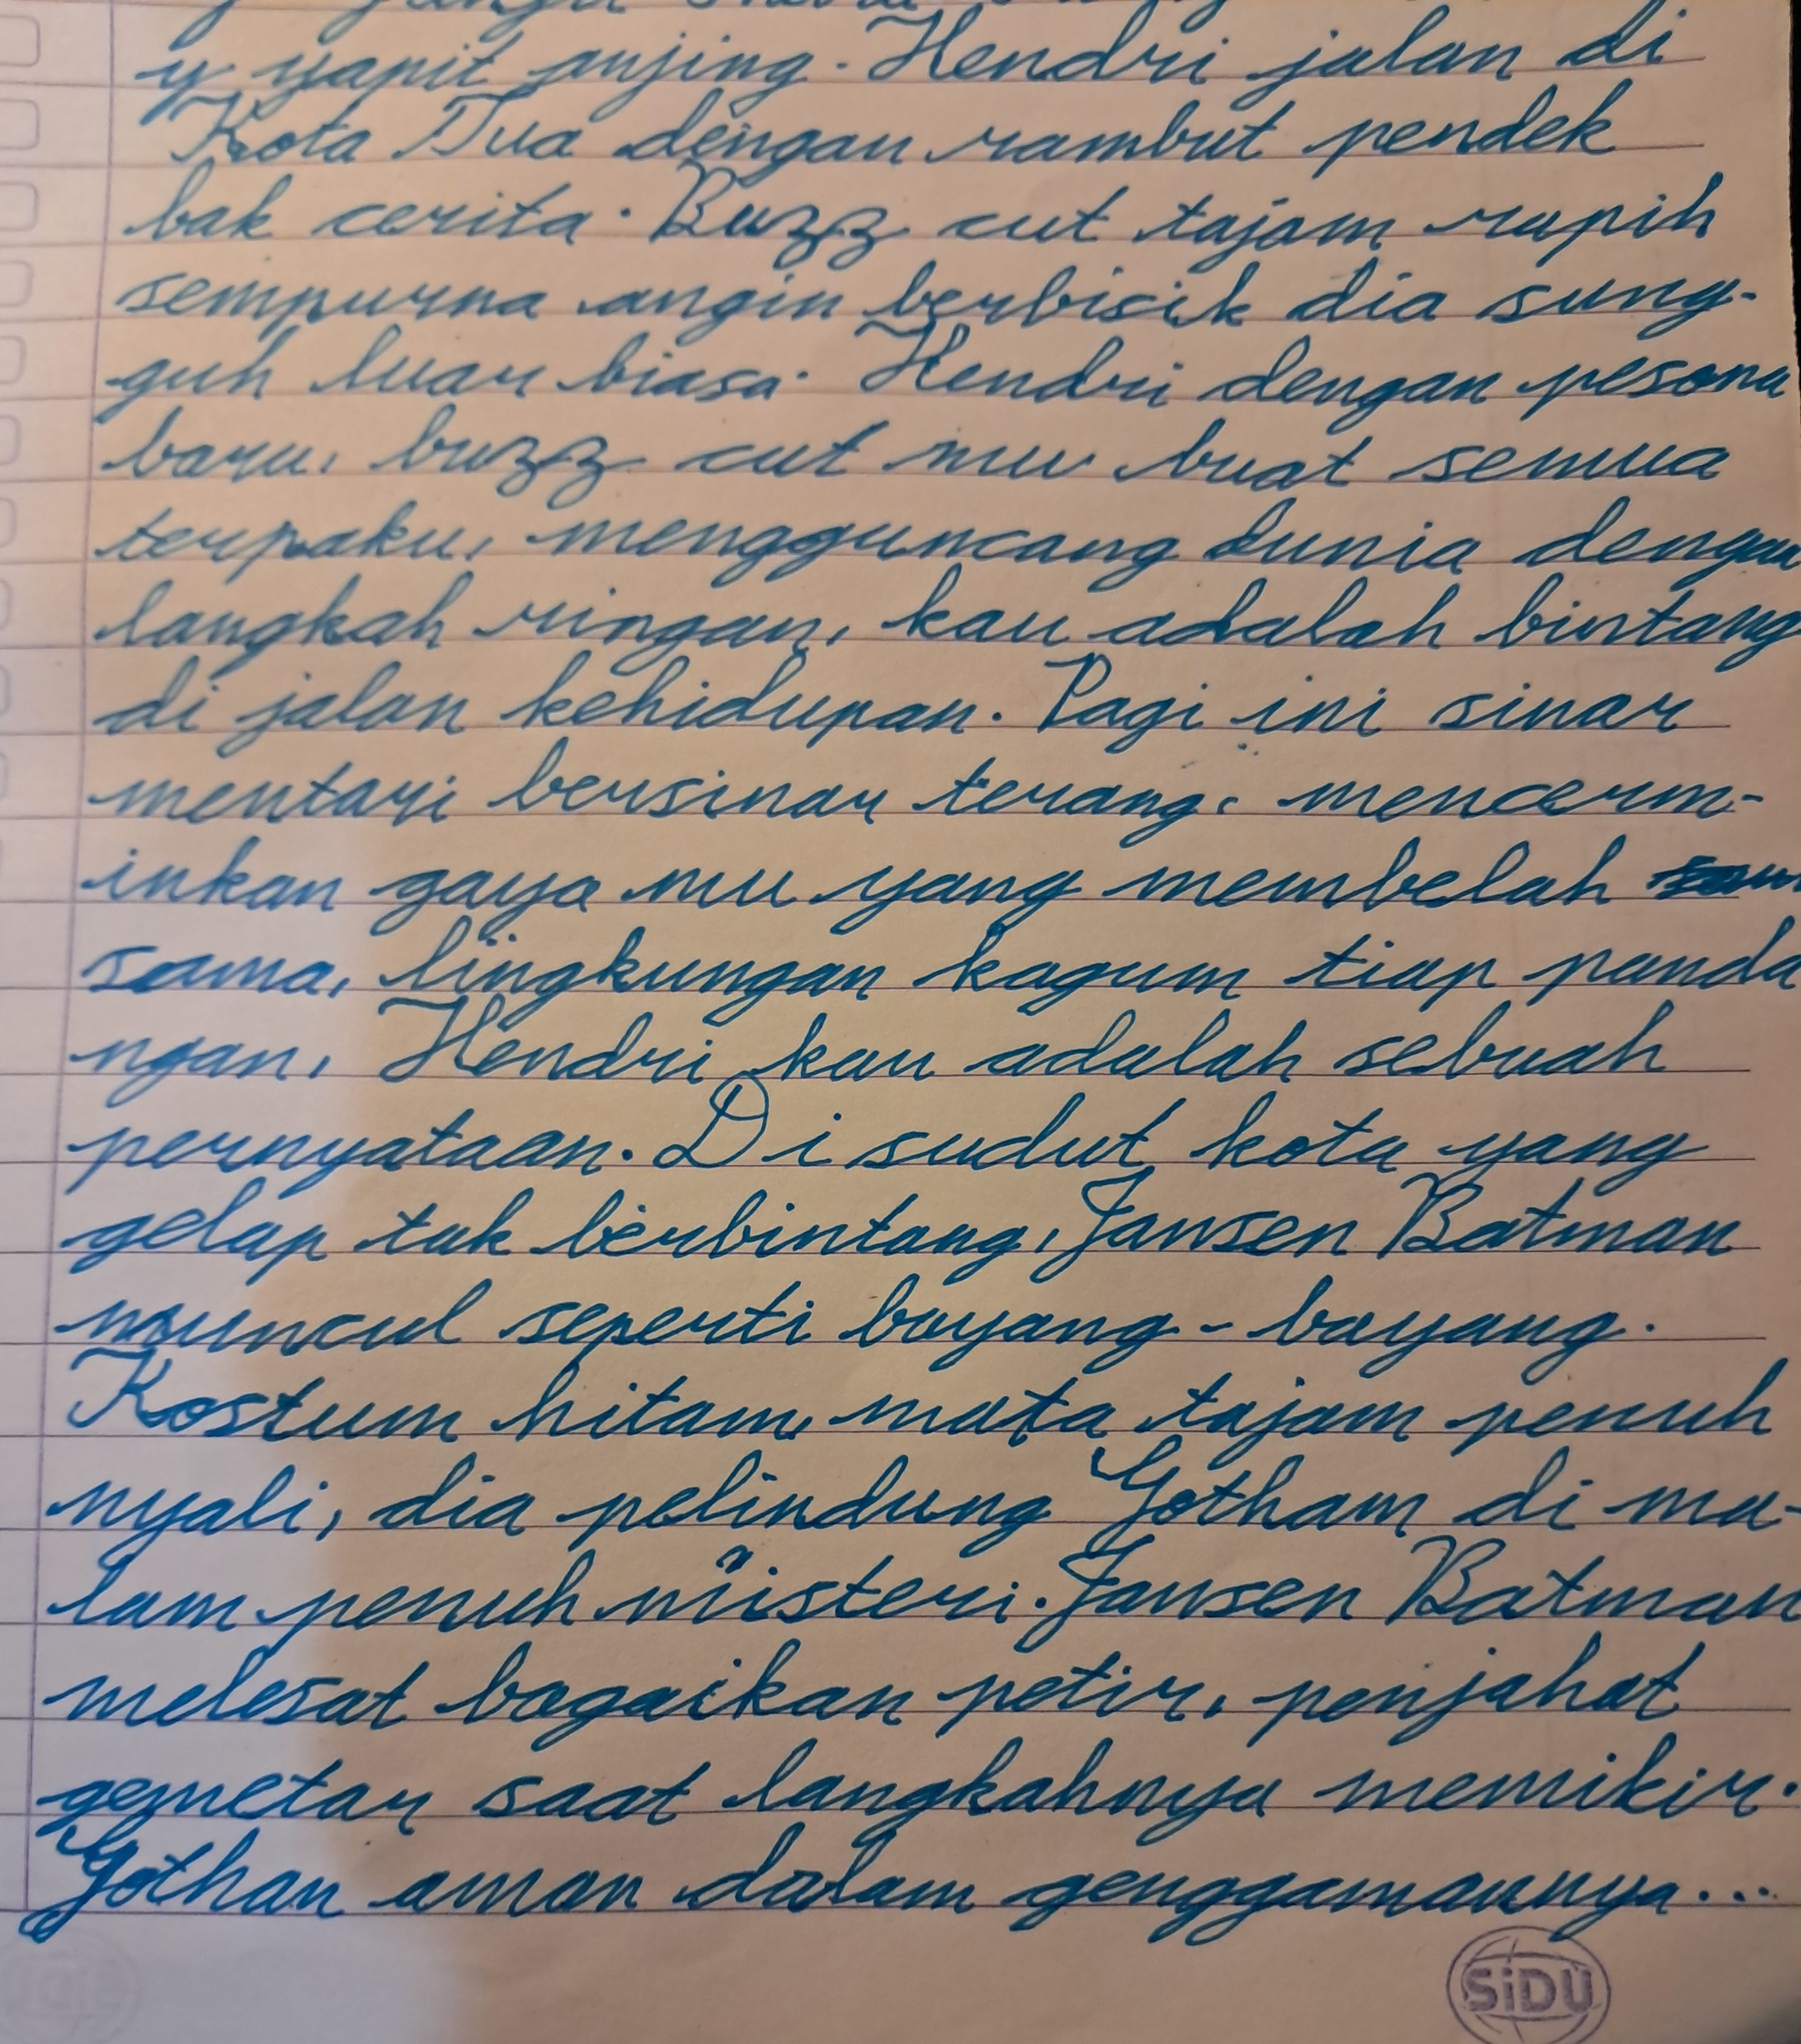 y yapit anjing. Hendri jalan di
Kota Tua dengan rambut pendek
bak cerita. Buzz cut tajam rapih
sempurna angin berbisik dia sung-
guh luar biasa. Hendri dengan pesona
baru, buzz cut mu buat semua
terpaku, mengguncang dunia dengan
langkah ringan, kau adalah bintang
di jalan kehidupan. Pagi ini sinar
mentari bersinar terang, mencerm-
inkan gaya mu yang membelah
sama, lingkungan kagum tiap panda
ngan, Hendri kau adalah sebuah
pernyataan. Di sudut kota yang
gelap tak berbintang, Jansen Batman
muncul seperti bayang-bayang.
Kostum hitam, mata tajam penuh
nyali, dia pelindung Gotham di ma-
lam penuh misteri. Jansen Batman
melesat bagaikan petir, penjahat
gemetar saat langkahnya memikir.
Gothan aman dalam genggamannya...
SiDU